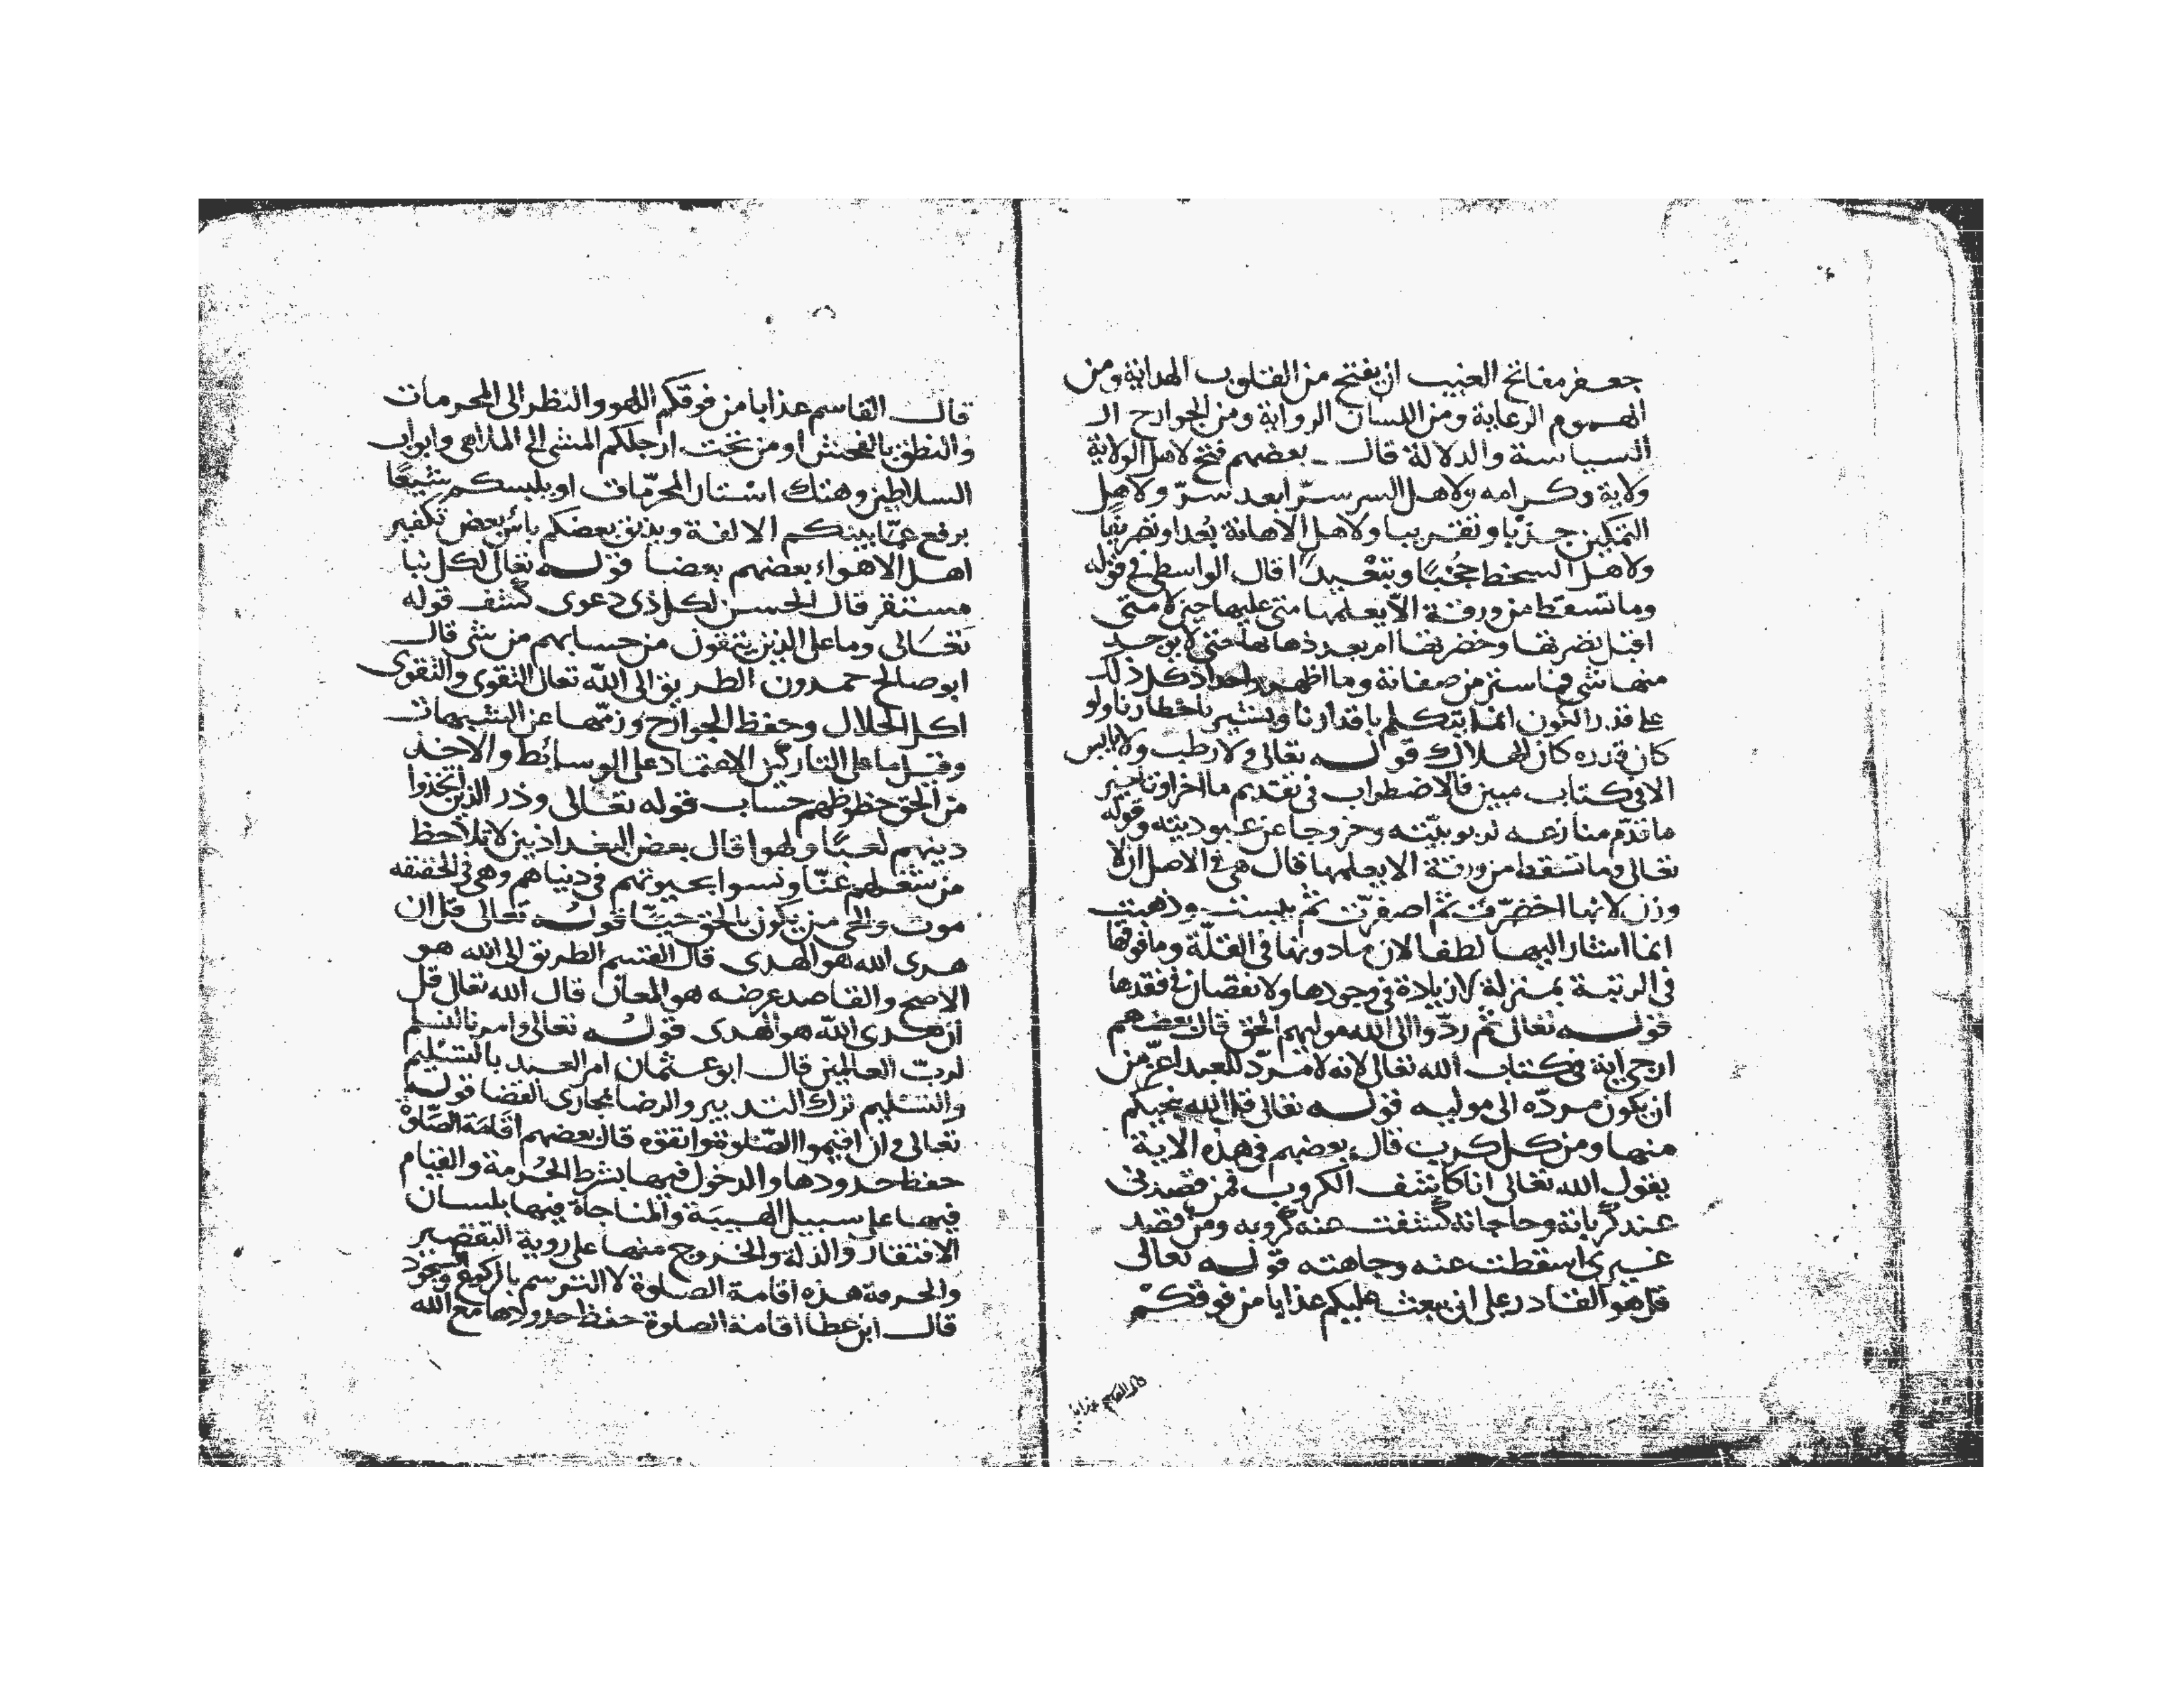 جعفر مفاتح الغيب ان يفتح من القلوب الهداية ومن
الهموم الرعاية ومن اللسان الرواية ومن الجوارح الـ
السياسة والدلالة قال بعضهم فتح لاهل الولاية
ولاية وكرامه ولاهل السر سرّا بعد سرّ ولاهل
التمكين جذبا وتقريبا ولاهل الاهانة بُعدا وتضريبا
ولاهل السخط حُجُبًا وتبعيدًا قال الواسطي في قوله
وما تسقط من ورقة الّا يعلمها متى عليها حين لا متى
اقبل نضرتها وخضرتها ام بعد ذهابها حتى لا يوجد
منها شي فما ستر من صفاته وما اظهر واحد اذ كل ذلك
على قدر الكون انما يتكلم باقدارنا ويشير باخطارنا ولو
كان قدره كان الهلاك قوله تعالى ولا رطب ولا يابس
الا في كتاب مبين فالاضطراب في تقديم ما اخر او تاخير
ما قدّم منازعه لربوبيّته وخروجا عن عبوديته وقوله
تعالى وما تسقط من ورقة الا يعلمها قال هي في الاصل ان لا
وزن لانها اخضرّت ثم اصفرّت ثم يبست وذهبت
انما اشار اليها لطفا لان ما دونها في القلّة وما فوقها
في الرتبة بمنزلة لا زيادة في وجودها ولا نقصان في فقدها
قوله تعالى ثم ردّوا الى الله موليهم الحق قال بعضهم
ارجى اية في كتاب الله تعالى لانه لا مردّ للعبد اعزّ من
ان يكون مردّه الى موليه قوله تعالى قل الله ينجيكم
منها ومن كل كرب قال بعضهم في هذه الاية
يقول الله تعالى انا كاشف الكروب فمن قصدنى
عند كرباته وحاجاته كشفت عنه كروبه ومن قصد
غيرى اسقطت عنه وجاهته قوله تعالى
قل هو القادر على ان يبعث عليكم عذابا من فوقكم
قال القاسم عذابا
قال القاسم عذابا من فوقكم اللهو والنظر الى المحرمات
والنطق بالفحش او من تحت ارجلكم المشى الى الملاهى وابواب
السلاطين وهتك استار المحرّمات او يلبسكم شيعًا
يرفع عمّا بينكم الالفة ويذيق بعضكم باس بعض تكفير
اهل الاهواء بعضهم بعضا قوله تعالى لكل نبا
مستقر قال الحسن لكل ذى دعوى كشف قوله
تعالى وما على الذين يتقون من حسابهم من شى قال
ابو صالح حمدون الطريق الى الله تعالى التقوى والتقوى
اكل الحلال وحفظ الجوارح وزمّها عن الشبهات
وقيل ما على التاركين الاعتماد على الوسائط والاخذ
من الحق حظوظهم حساب قوله تعالى وذر الذين اتخذوا
دينهم لعبًا ولهوا قال بعض البغداذيين لا تلاحظ
من شغلهم عنّا ونسوا بحيوتهم في دنياهم وهي في الحقيقه
موت والحى من يكون بالحق حيًّا قوله تعالى قل ان
هدى الله هو الهدى قال القسم الطريق الى الله هو
الاصح والقاصد عرضه هو المعان قال الله تعالى قل
ان هدى الله هو الهدى قوله تعالى وامرنا لنسلم
لربّ العالمين قال ابو عثمان امر العبد بالتسليم
والتسليم ترك التدبير والرضا بمجارى القضا قوله
تعالى وان اقيموا الصّلوة واتقوه قال بعضهم اقامة الصّلوة
حفظ حدودها والدخول فيها بشرط الحُرمة والقيام
فيها على سبيل الهيبَة والمناجاة فيها بلسان
الافتقار والذلة والخروج منها على روية التقصير
والحرمة هذه اقامة الصلوة لا التوسم بالركوع والسجود
قال ابن عطا اقامة الصلوة حفظ حدودها مع الله